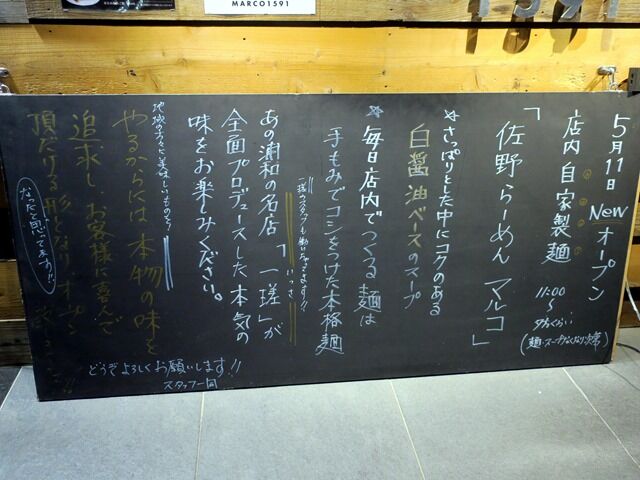 MARCO1591
1591
5月11日 Newオープン
店内自家製麺
11:00
〜
夕方くらい
(麺・スープなくなり次第)
「佐野らーめん マルコ」
☆さっぱりとした中にコクのある
白醤油ベースのスープ
☆毎日店内でつくる麺は
手もみでコシをつけた本格麺
一瑳スタッフも働いちゃってます!!
いっさ
あの浦和の名店「一瑳」が
全面プロデュースした本気の
味をお楽しみください。
地域の方々に美味しいものを!
やるからには本物の味を
追求し、お客様に喜んで
頂だける形となりオープン
なったと思ってます!!
どうぞよろしくお願いします!!
スタッフ一同